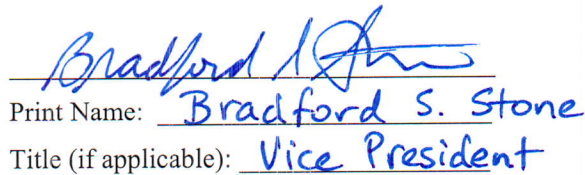 Bradford S Stone
Print Name: Bradford S. Stone
Title (if applicable): Vice President